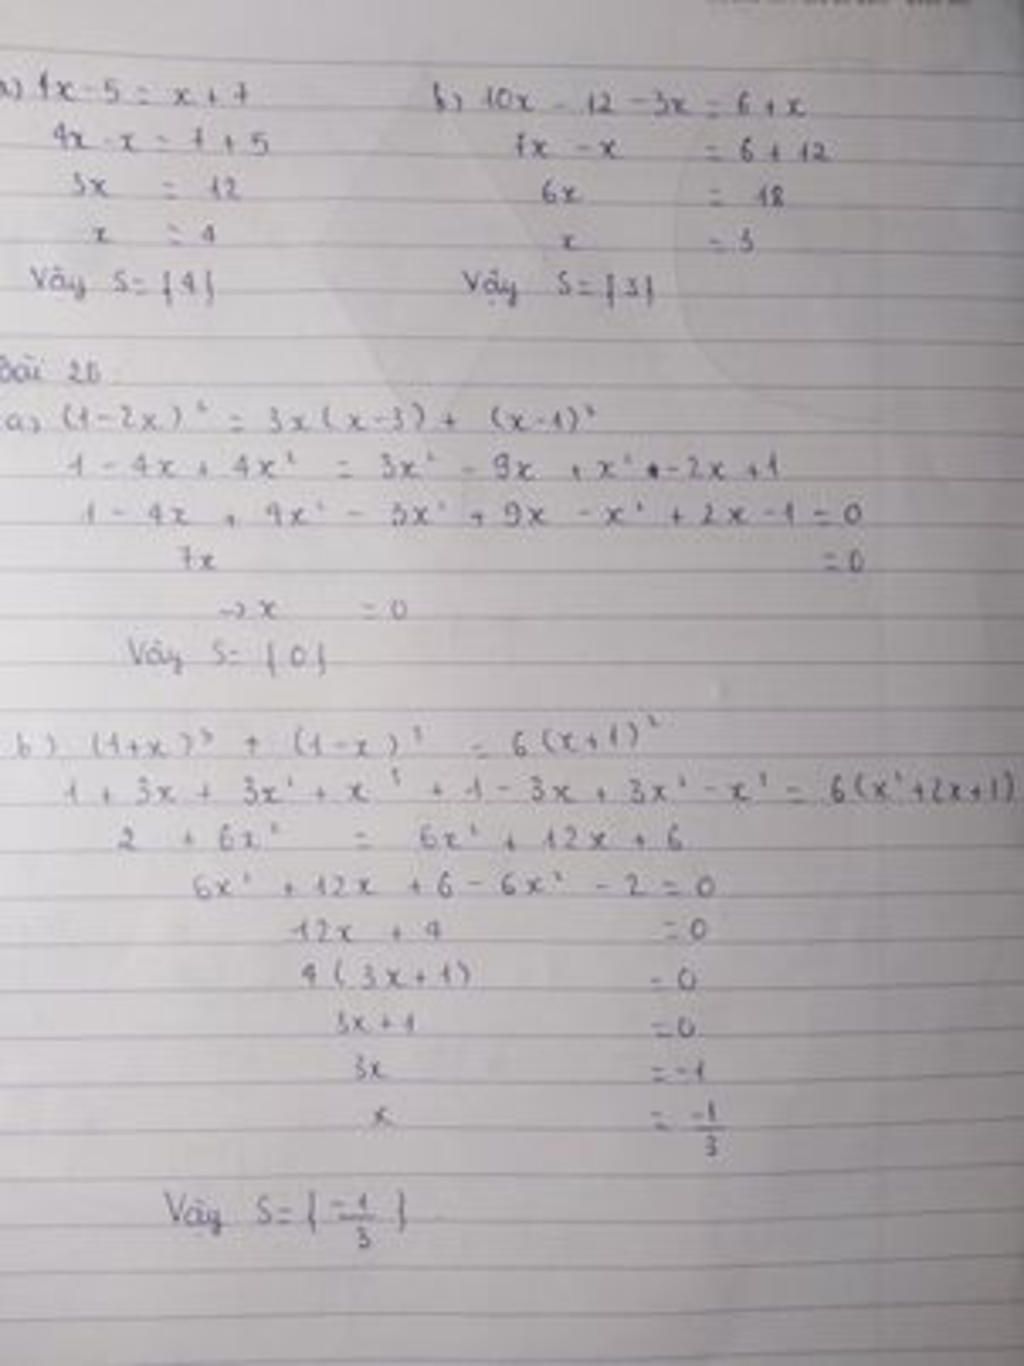 a) 4x - 5 = x + 7
4x - x = 7 + 5
3x = 12
x = 4
Vậy S = {4}
b) 10x - 12 - 3x = 6 + x
7x - x = 6 + 12
6x = 18
x = 3
Vậy S = {3}
Bài 26
a) (1-2x)² = 3x(x-3) + (x-1)²
1 - 4x + 4x² = 3x² - 9x + x² - 2x + 1
1 - 4x + 4x² - 3x² + 9x - x² + 2x - 1 = 0
7x = 0
→ x = 0
Vậy S = {0}
b) (1+x)³ + (1-x)³ = 6(x+1)²
1 + 3x + 3x² + x³ + 1 - 3x + 3x² - x³ = 6(x²+2x+1)
2 + 6x² = 6x² + 12x + 6
6x² + 12x + 6 - 6x² - 2 = 0
12x + 4 = 0
4(3x+1) = 0
3x + 1 = 0
3x = -1
x = -1/3
Vậy S = {-1/3}